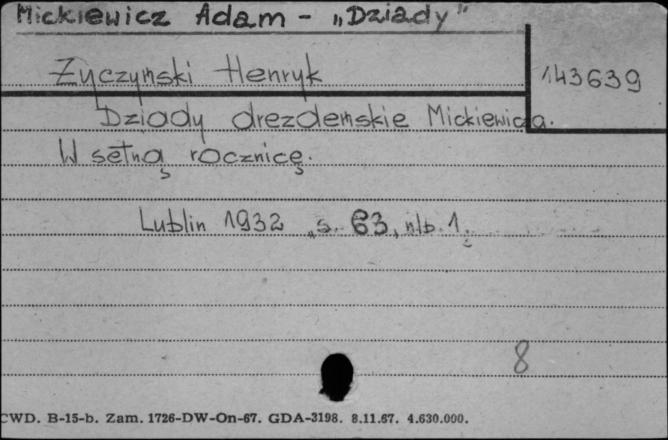 Mickiewicz Adam - „Dziady"
Życzyński Henryk
143639
Dziady drezdeńskie Mickiewicza.
W setną rocznicę.
Lublin 1932 , s. 63, nlb. 1.
8
CWD. B-15-b. Zam. 1726-DW-On-67. GDA-3198. 8.11.67. 4.630.000.